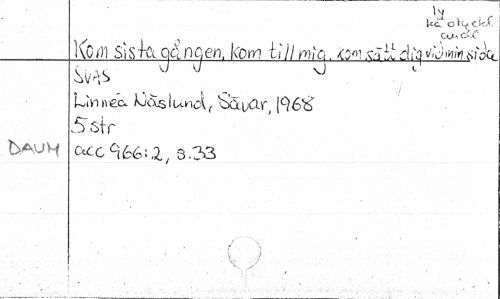 ly
kä olyckl
andl
Kom sista gången, kom till mig, kom sätt dig vid min sida
SVAS
Linnéa Näslund, Sävar, 1968
5 str
DAUM acc 966:2, s.33